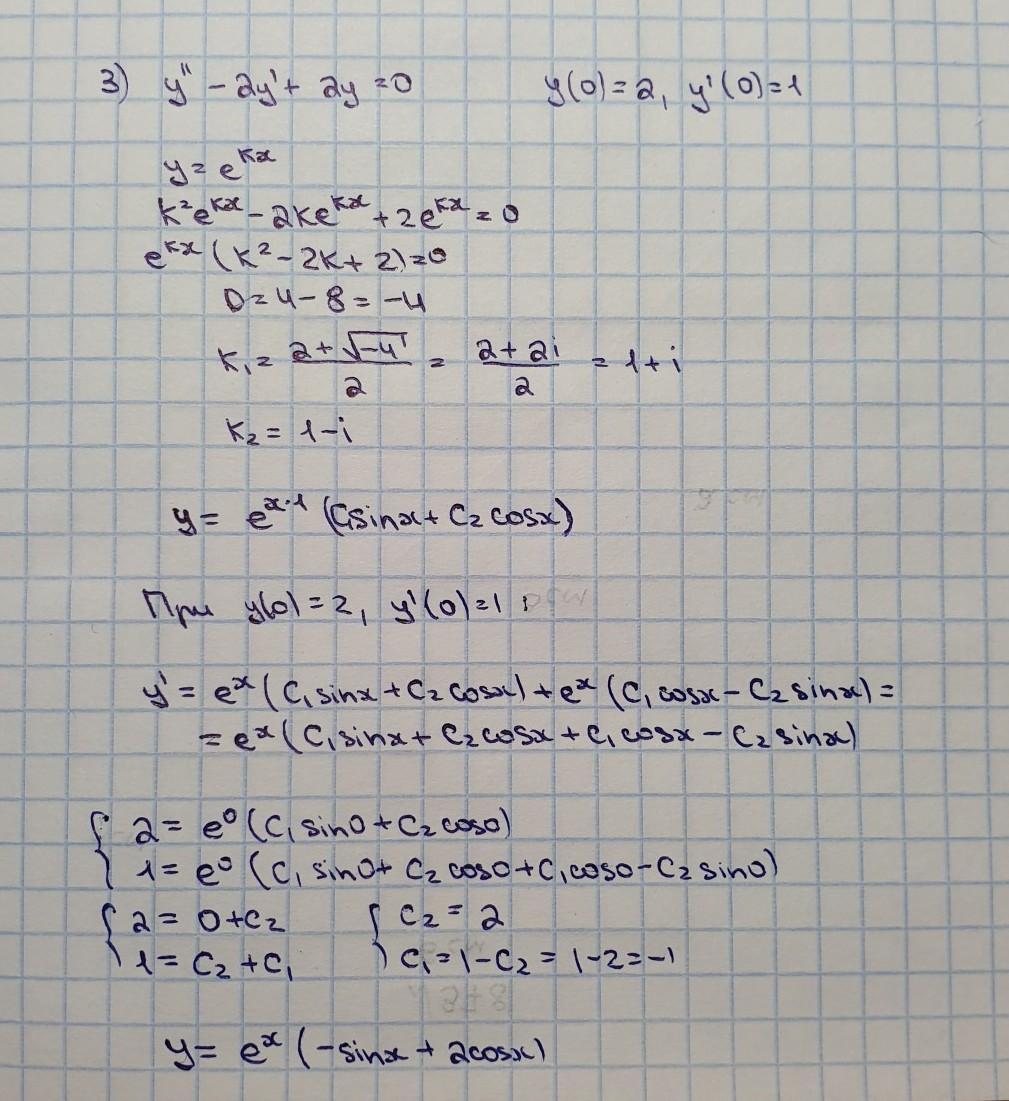 3) y'' - 2y' + 2y = 0    y(0) = 2, y'(0) = 1
y = e^{kx}
k²e^{kx} - 2ke^{kx} + 2e^{kx} = 0
e^{kx}(k² - 2k + 2) = 0
D = 4 - 8 = -4
k₁ = \frac{2 + √-4}{2} = \frac{2 + 2i}{2} = 1 + i
k₂ = 1 - i
y = e^{x·1}(C₁sinx + C₂cosx)
При y(0) = 2, y'(0) = 1 :
y' = e^x(C₁sinx + C₂cosx) + e^x(C₁cosx - C₂sinx) =
= e^x(C₁sinx + C₂cosx + C₁cosx - C₂sinx)
{ 2 = e⁰(C₁sin0 + C₂cos0)
1 = e⁰(C₁sin0 + C₂cos0 + C₁cos0 - C₂sin0)
{ 2 = 0 + C₂    { C₂ = 2
1 = C₂ + C₁    C₁ = 1 - C₂ = 1 - 2 = -1
y = e^x(-sinx + 2cosx)